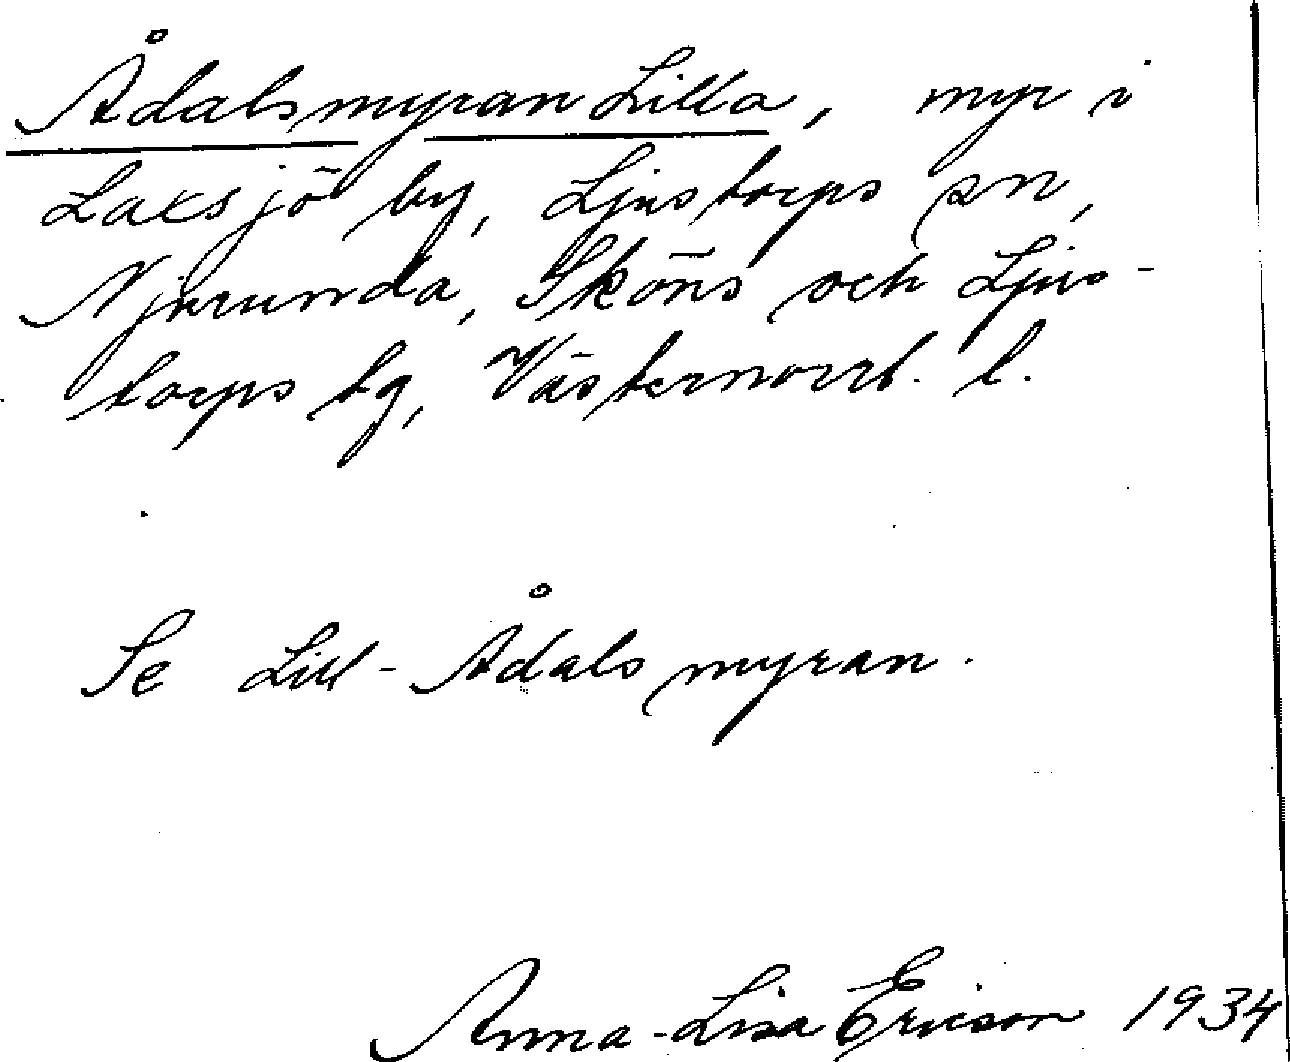 Ådalsmyran Lilla, myr i
Laxsjö by, Ljustorps sn,
Njurunda, Sköns och Ljus-
torps tg, Västernorrl. l.
Se Lill-Ådalsmyran.
Anna-Lisa Ericson 1934